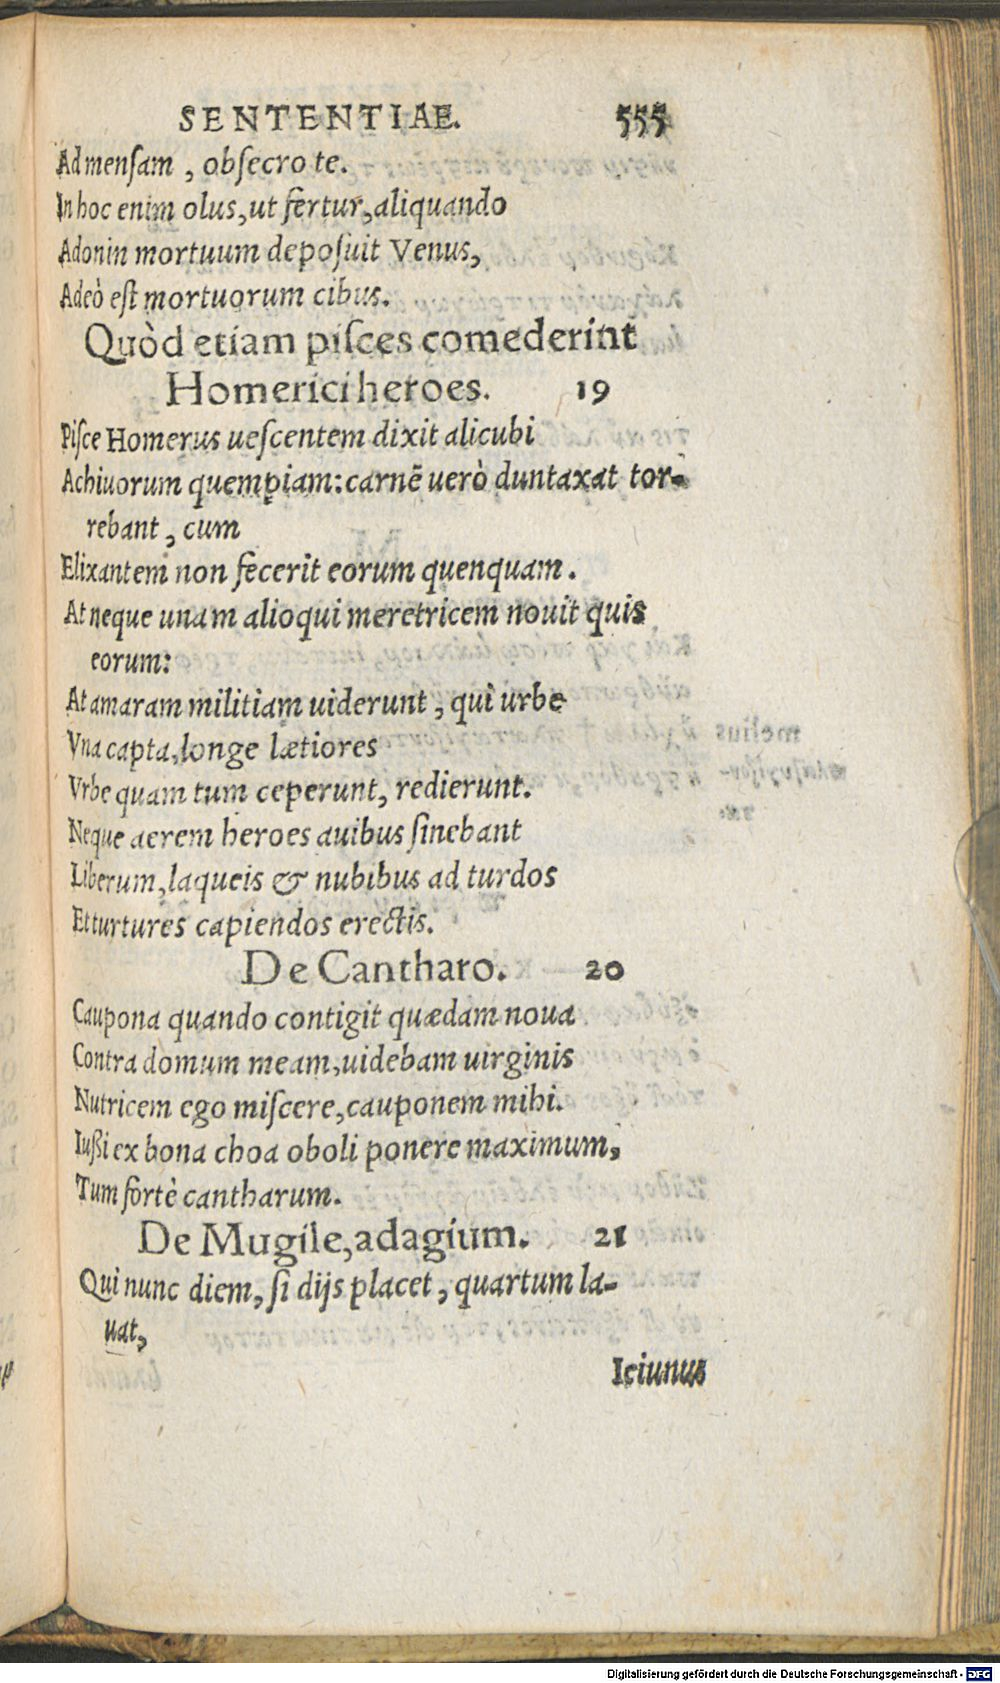 SENTENTIAE. 555
Ad mensam, obsecro te.
In hoc enim olus, ut fertur, aliquando
Adonin mortuum deposuit Venus,
Adeò est mortuorum cibus.
Quòd etiam pisces comederint
Homerici heroes. 19
Pisce Homerus uescentem dixit alicubi
Achiuorum quempiam: carnē uerò duntaxat tor-
rebant, cum
Elixantem non fecerit eorum quenquam.
At neque unam alioqui meretricem nouit quis
eorum:
At amaram militiam uiderunt, qui urbe
Vna capta, longe lætiores
Vrbe quam tum ceperunt, redierunt.
Neque aerem heroes auibus sinebant
Liberum, laqueis & nubibus ad turdos
Et turtures capiendos erectis.
De Cantharo. 20
Caupona quando contigit quædam noua
Contra domum meam, uidebam uirginis
Nutricem ego miscere, cauponem mihi.
Iußi ex bona choa oboli ponere maximum,
Tum fortè cantharum.
De Mugile, adagium. 21
Qui nunc diem, si dijs placet, quartum la-
uat,
Ieiunus
Digitalisierung gefördert durch die Deutsche Forschungsgemeinschaft - DFG